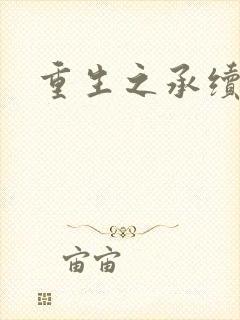 重生之承续
宙宙